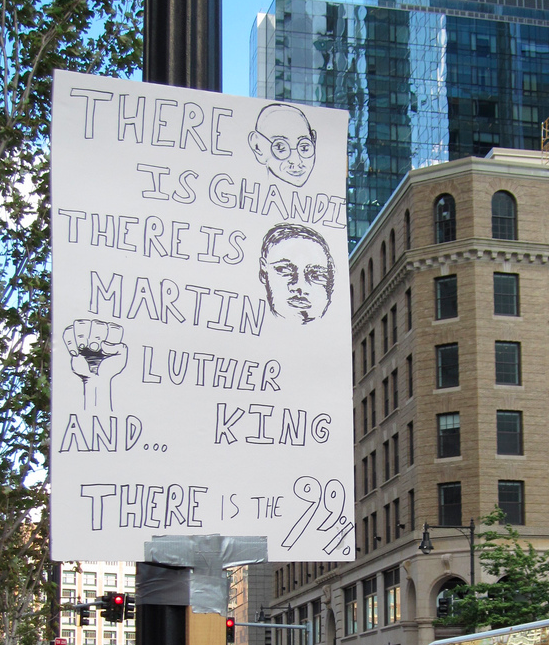 THERE
IS GHANDI
THERE IS
MARTIN
LUTHER
KING
AND...
THERE IS THE 99%